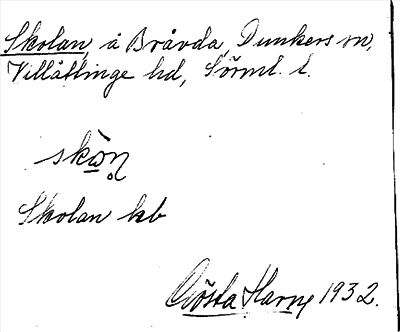 Skolan, å Bråvda, Dunkers sn,
Villåttinge hd, Sörml. l.
skò̱n̥
Skolan kb
Gösta Harne 1932.